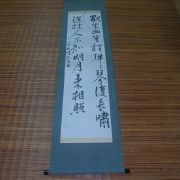 獨坐幽篁裡彈琴復長嘯
深林人不知明月來相照